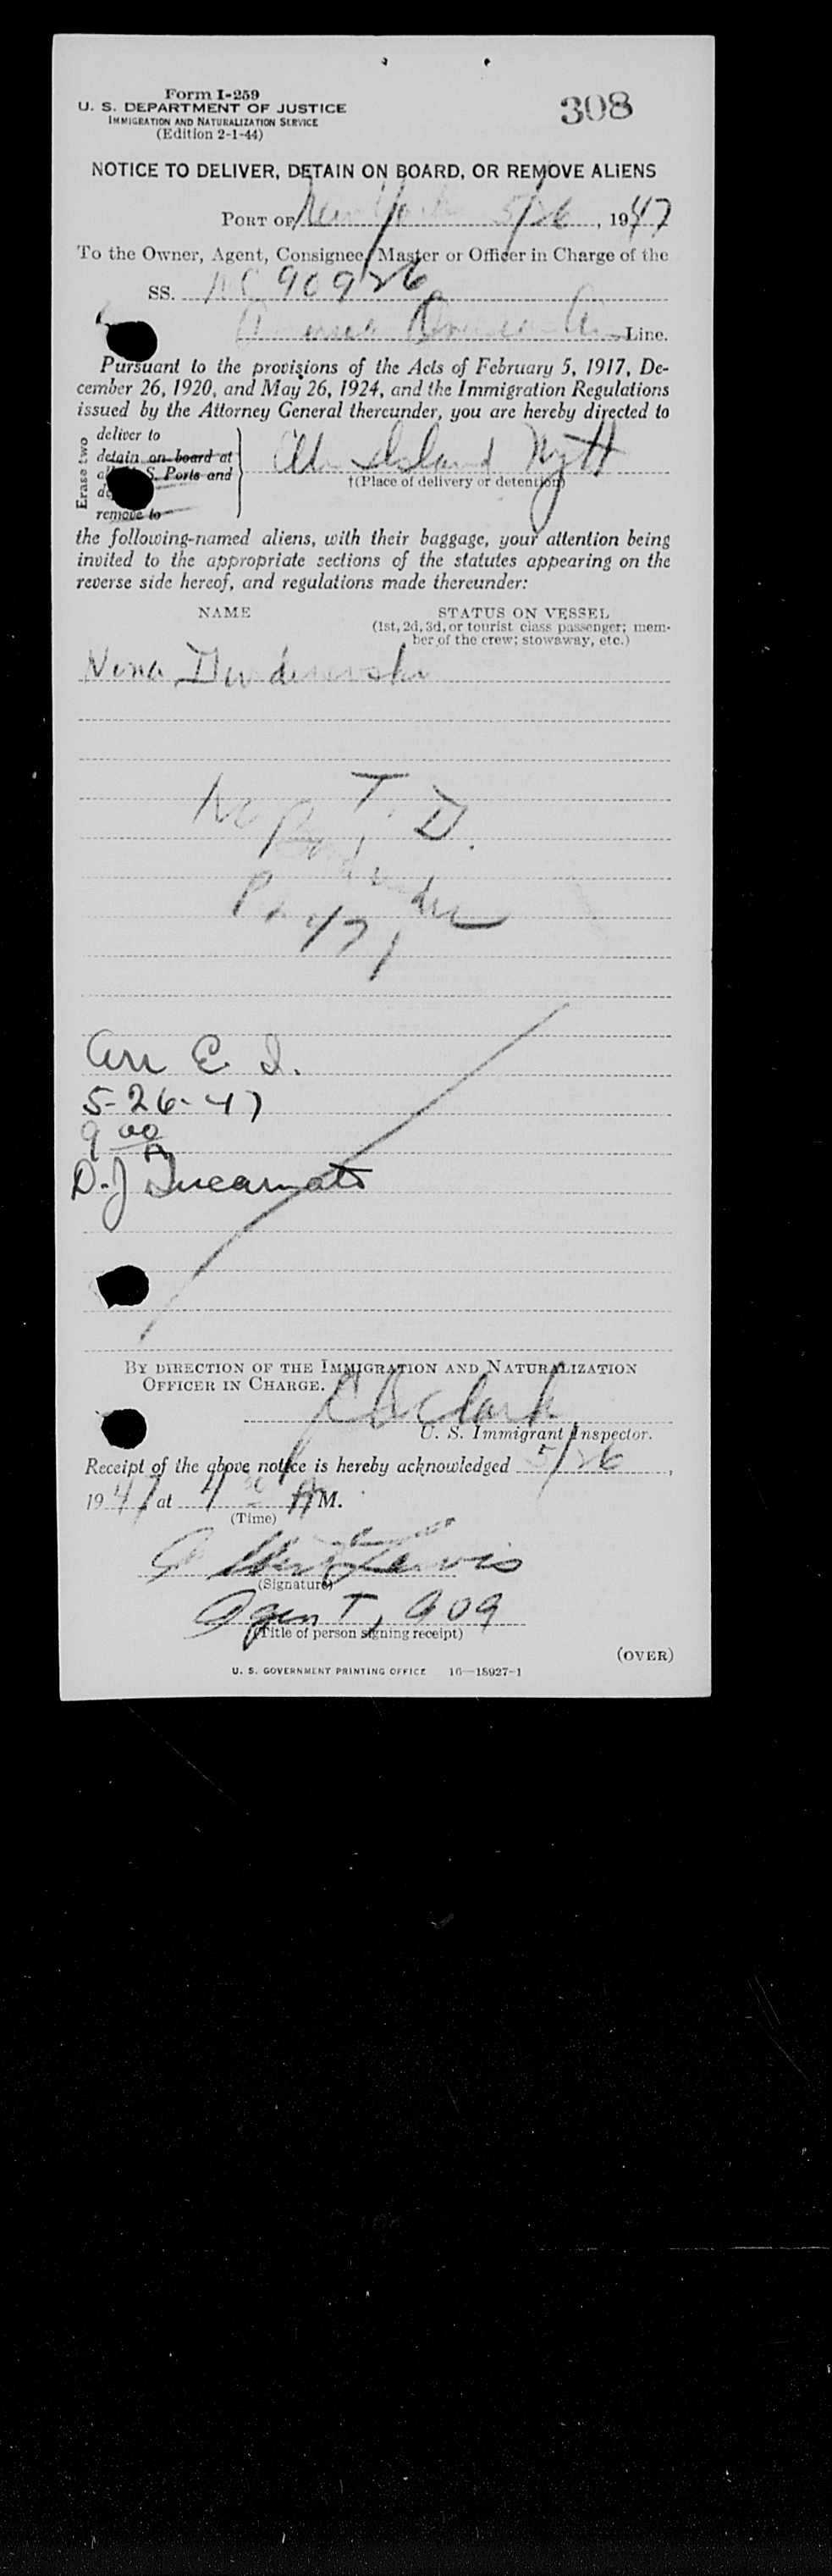 Form I-259
308
U. S. DEPARTMENT OF JUSTICE
IMMIGRATION AND NATURALIZATION SERVICE
(Edition 2-1-44)
NOTICE TO DELIVER, DETAIN ON BOARD, OR REMOVE ALIENS
PORT OF New York 5/26, 1947
To the Owner, Agent, Consignee, Master or Officer in Charge of the
SS. NC 90926
Line.
Pursuant to the provisions of the Acts of February 5, 1917, De-
cember 26, 1920, and May 26, 1924, and the Immigration Regulations
issued by the Attorney General thereunder, you are hereby directed to
Erase two
deliver to
detain on board at
S. Ports and
remove to
Island
†(Place of delivery or detention)
the following-named aliens, with their baggage, your attention being
invited to the appropriate sections of the statutes appearing on the
reverse side hereof, and regulations made thereunder:
NAME
STATUS ON VESSEL
(1st, 2d, 3d, or tourist class passenger; mem-
ber of the crew; stowaway, etc.)
Nina
T. D.
No
471
Arr E. I.
5-26-47
9 00 A
D. J. Incarnato
BY DIRECTION OF THE IMMIGRATION AND NATURALIZATION
OFFICER IN CHARGE.
Clark
U. S. Immigrant Inspector.
Receipt of the above notice is hereby acknowledged 5/26,
1947 at AM.
(Time)
(Signature)
Agent, 909
(Title of person signing receipt)
(OVER)
U. S. GOVERNMENT PRINTING OFFICE 16—18927-1